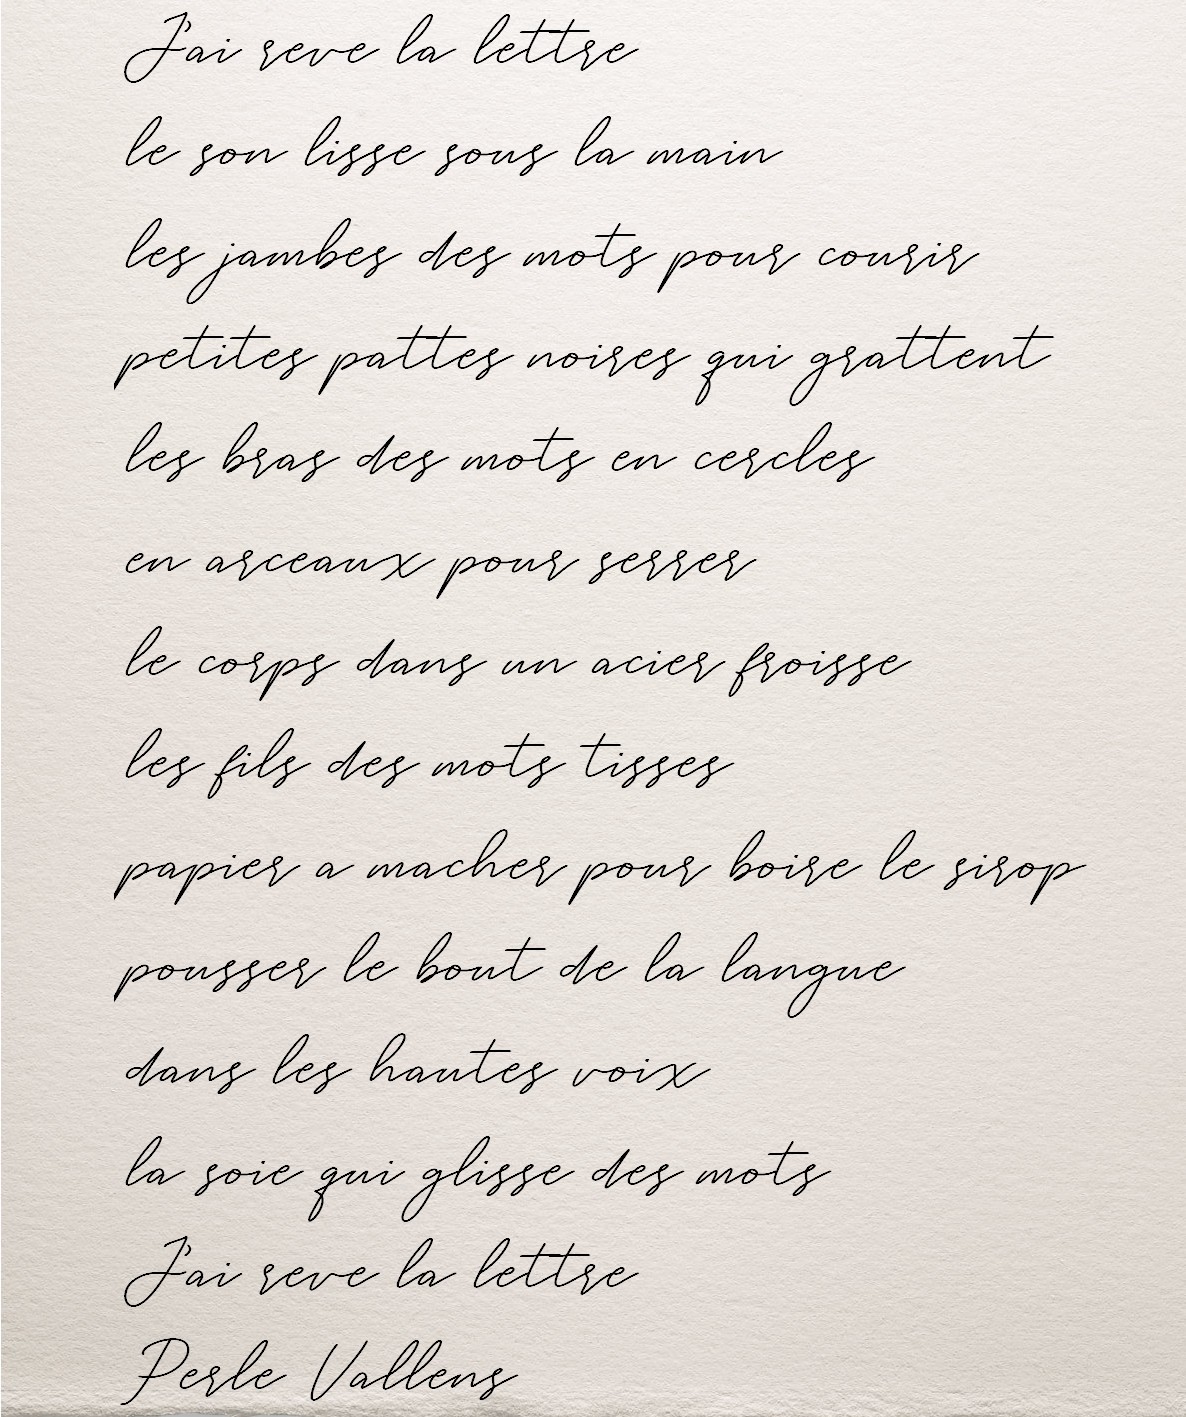 J'ai reve la lettre
le son lisse sous la main
les jambes des mots pour courir
petites pattes noires qui grattent
les bras des mots en cercles
en arceaux pour serrer
le corps dans un acier froisse
les fils des mots tisses
papier a macher pour boire le sirop
pousser le bout de la langue
dans les hautes voix
la soie qui glisse des mots
J'ai reve la lettre
Perle Vallens